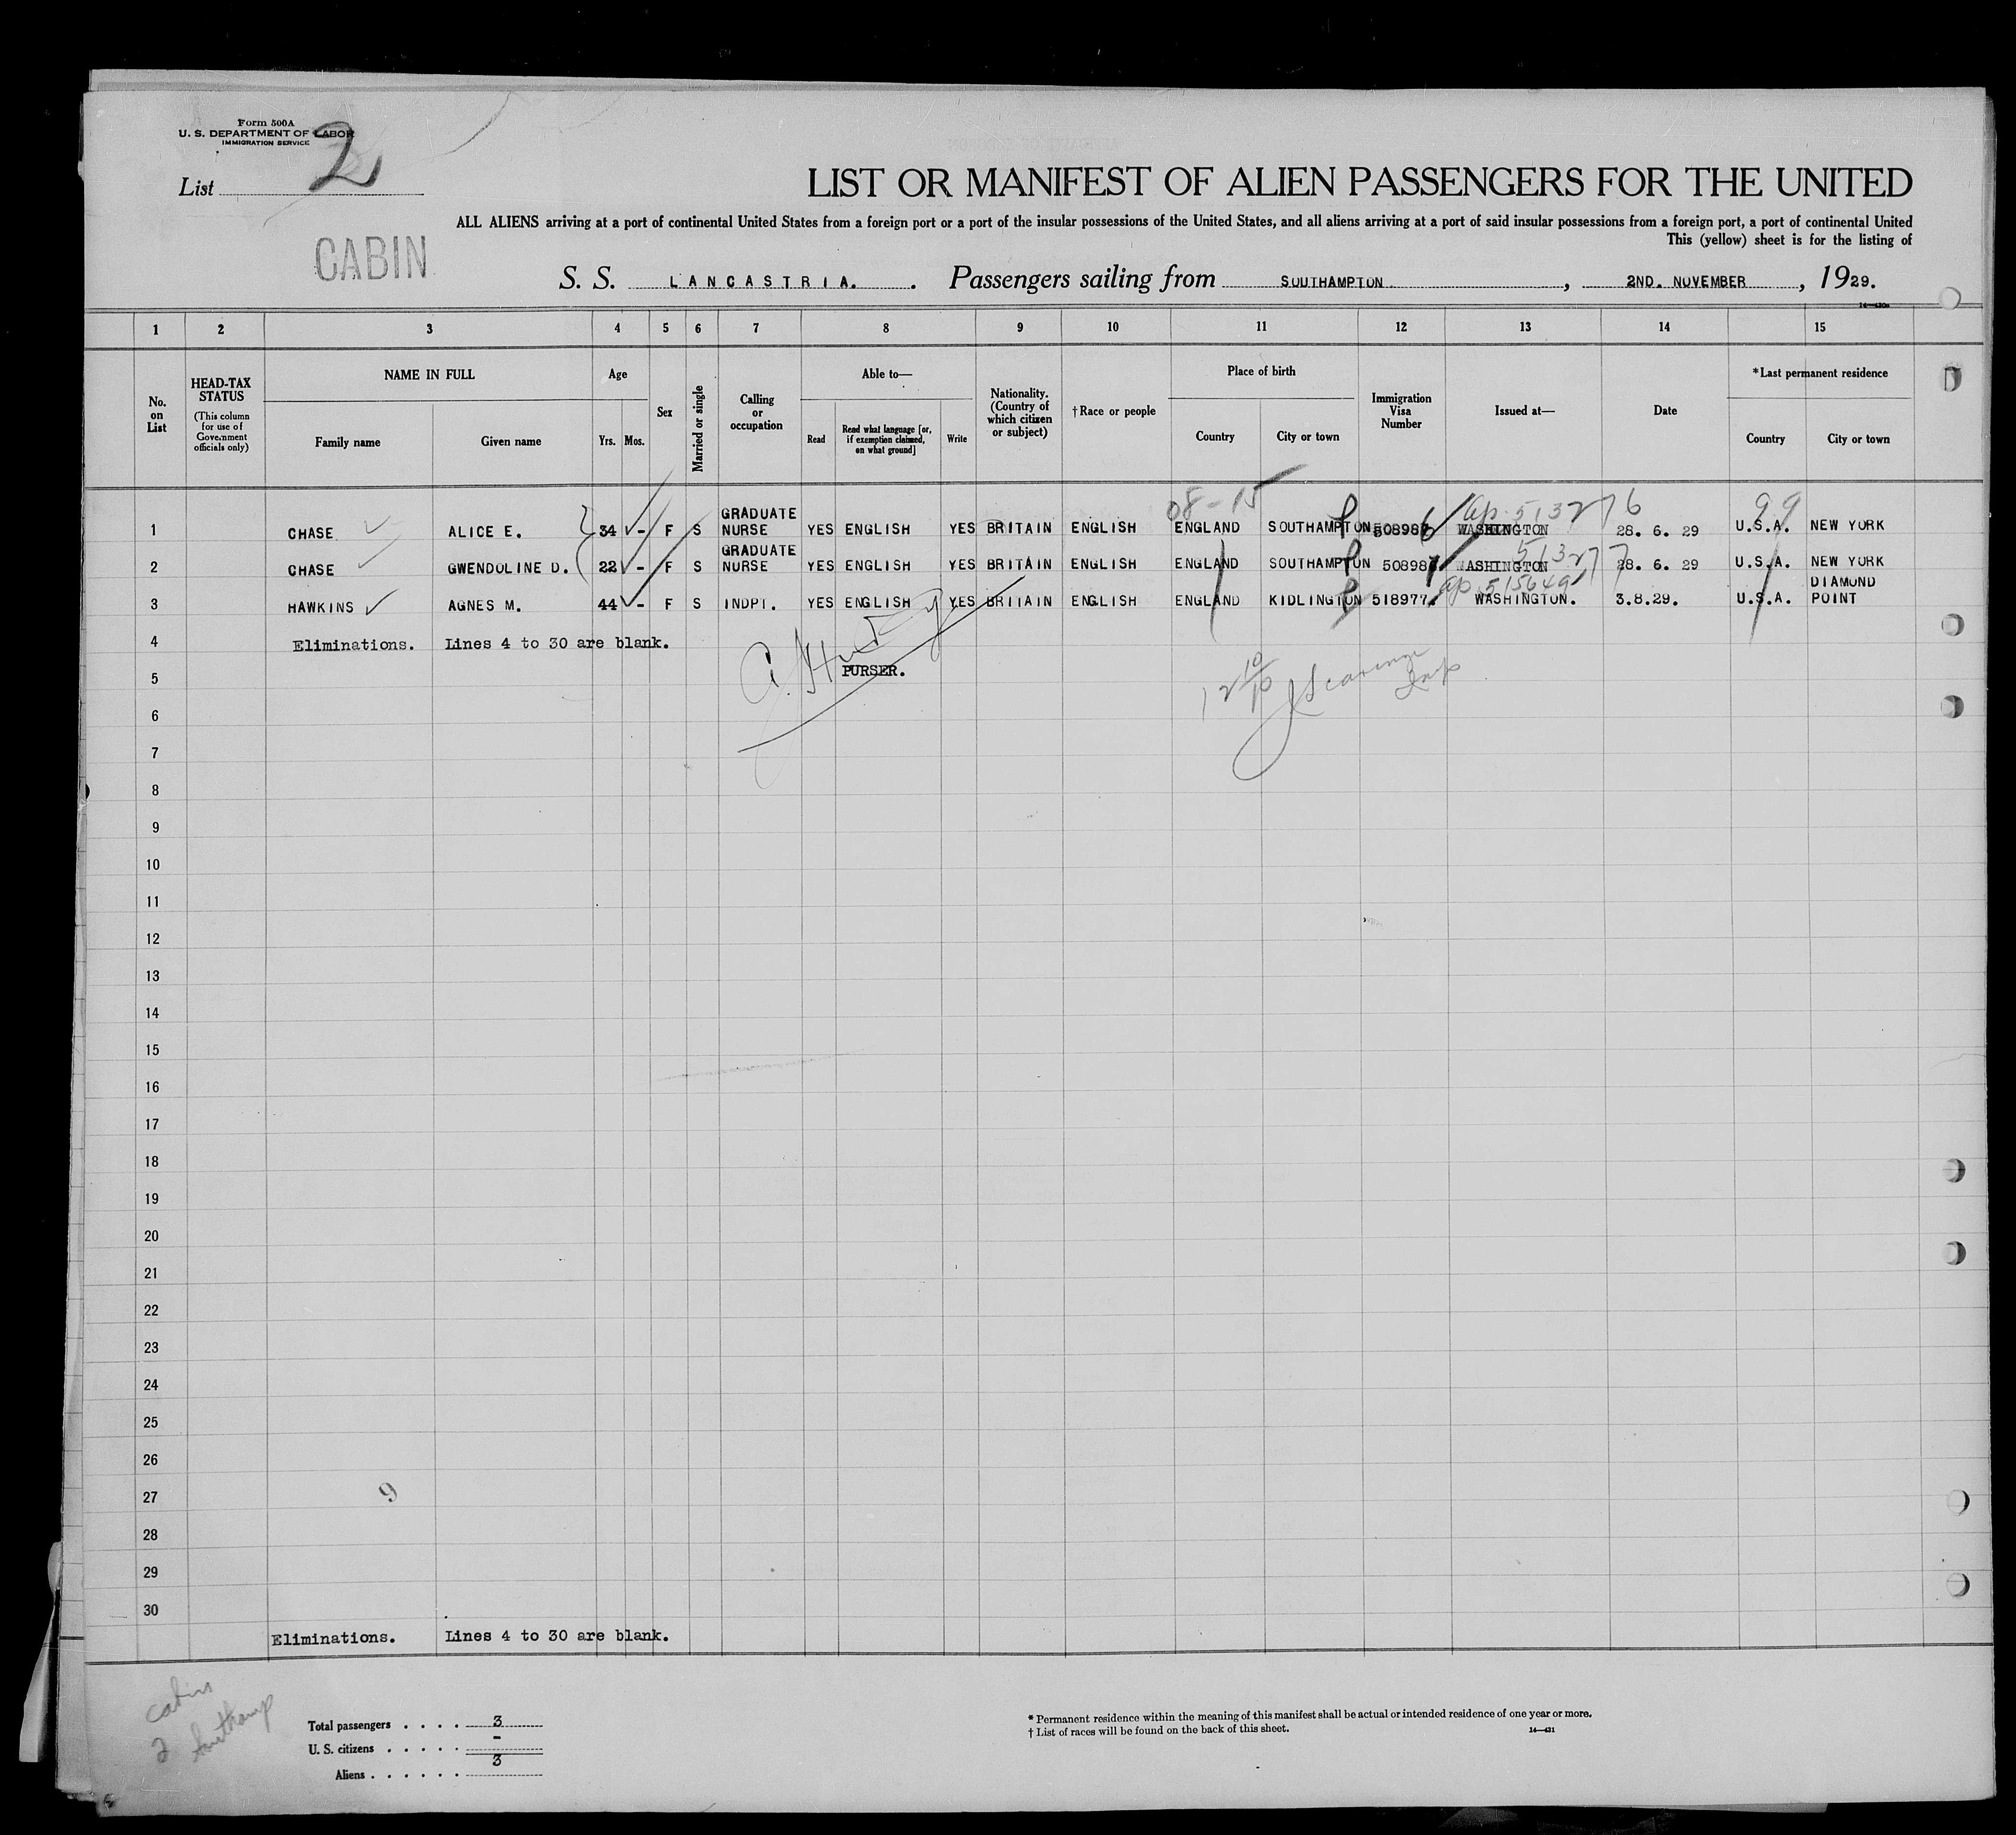 Form 500A
U. S. DEPARTMENT OF LABOR
IMMIGRATION SERVICE
List 2
CABIN
LIST OR MANIFEST OF ALIEN PASSENGERS FOR THE UNITED
ALL ALIENS arriving at a port of continental United States from a foreign port or a port of the insular possessions of the United States, and all aliens arriving at a port of said insular possessions from a foreign port, a port of continental United
This (yellow) sheet is for the listing of
S. S. LANCASTRIA. Passengers sailing from SOUTHAMPTON, 2ND. NOVEMBER, 1929.
1 2 3 4 5 6 7 8 9 10 11 12 13 14 15
No. on List
HEAD-TAX STATUS
(This column for use of Government officials only)
NAME IN FULL
Family name Given name
Age
Yrs. Mos.
Sex
Married or single
Calling or occupation
Able to—
Read
Read what language [or, if exemption claimed, on what ground]
Write
Nationality. (Country of which citizen or subject)
†Race or people
Place of birth
Country City or town
Immigration Visa Number
Issued at—
Date
*Last permanent residence
Country City or town
08-15 ap. 513276 99
1 CHASE ALICE E. 34 - F S GRADUATE NURSE YES ENGLISH YES BRITAIN ENGLISH ENGLAND SOUTHAMPTON 508986 WASHINGTON 28. 6. 29 U.S.A. NEW YORK
513277
2 CHASE GWENDOLINE D. 22 - F S GRADUATE NURSE YES ENGLISH YES BRITAIN ENGLISH ENGLAND SOUTHAMPTON 508987 WASHINGTON 28. 6. 29 U.S.A. NEW YORK
ap. 515649
3 HAWKINS AGNES M. 44 - F S INDPT. YES ENGLISH YES BRITAIN ENGLISH ENGLAND KIDLINGTON 518977. WASHINGTON. 3.8.29. U.S.A. DIAMOND POINT
4 Eliminations. Lines 4 to 30 are blank.
5 PURSER.
6
7
8
9
10
11
12
13
14
15
16
17
18
19
20
21
22
23
24
25
26
27 9
28
29
30
Eliminations. Lines 4 to 30 are blank.
cabin
2 Southamp
Total passengers . . . . 3
U. S. citizens . . . . . -
Aliens . . . . . . 3
* Permanent residence within the meaning of this manifest shall be actual or intended residence of one year or more.
† List of races will be found on the back of this sheet.
14—431